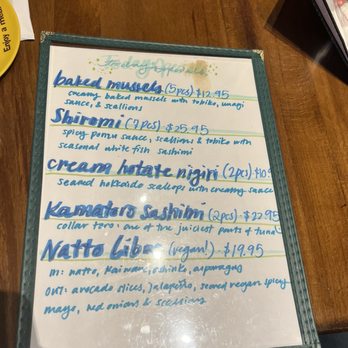 Enjoy a
Today's Specials
baked mussels (5pcs) $12.95
creamy baked mussels with tobiko, unagi
sauce, & scallions
Shiromi (7pcs) $25.95
spicy ponzu sauce, scallions & tobiko with
seasonal white fish sashimi
cream hotate nigiri (2pcs) $10.
seared hokkaido scallops with creamy sauce
Kamatoro Sashimi (2pcs) $22.95
collar toro: one of the juiciest parts of tuna
Natto Libre (vegan!) $19.95
IN: natto, kaiware, oshinko, asparagus
OUT: avocado slices, jalapeño, seared vegan spicy
mayo, red onions & scallions